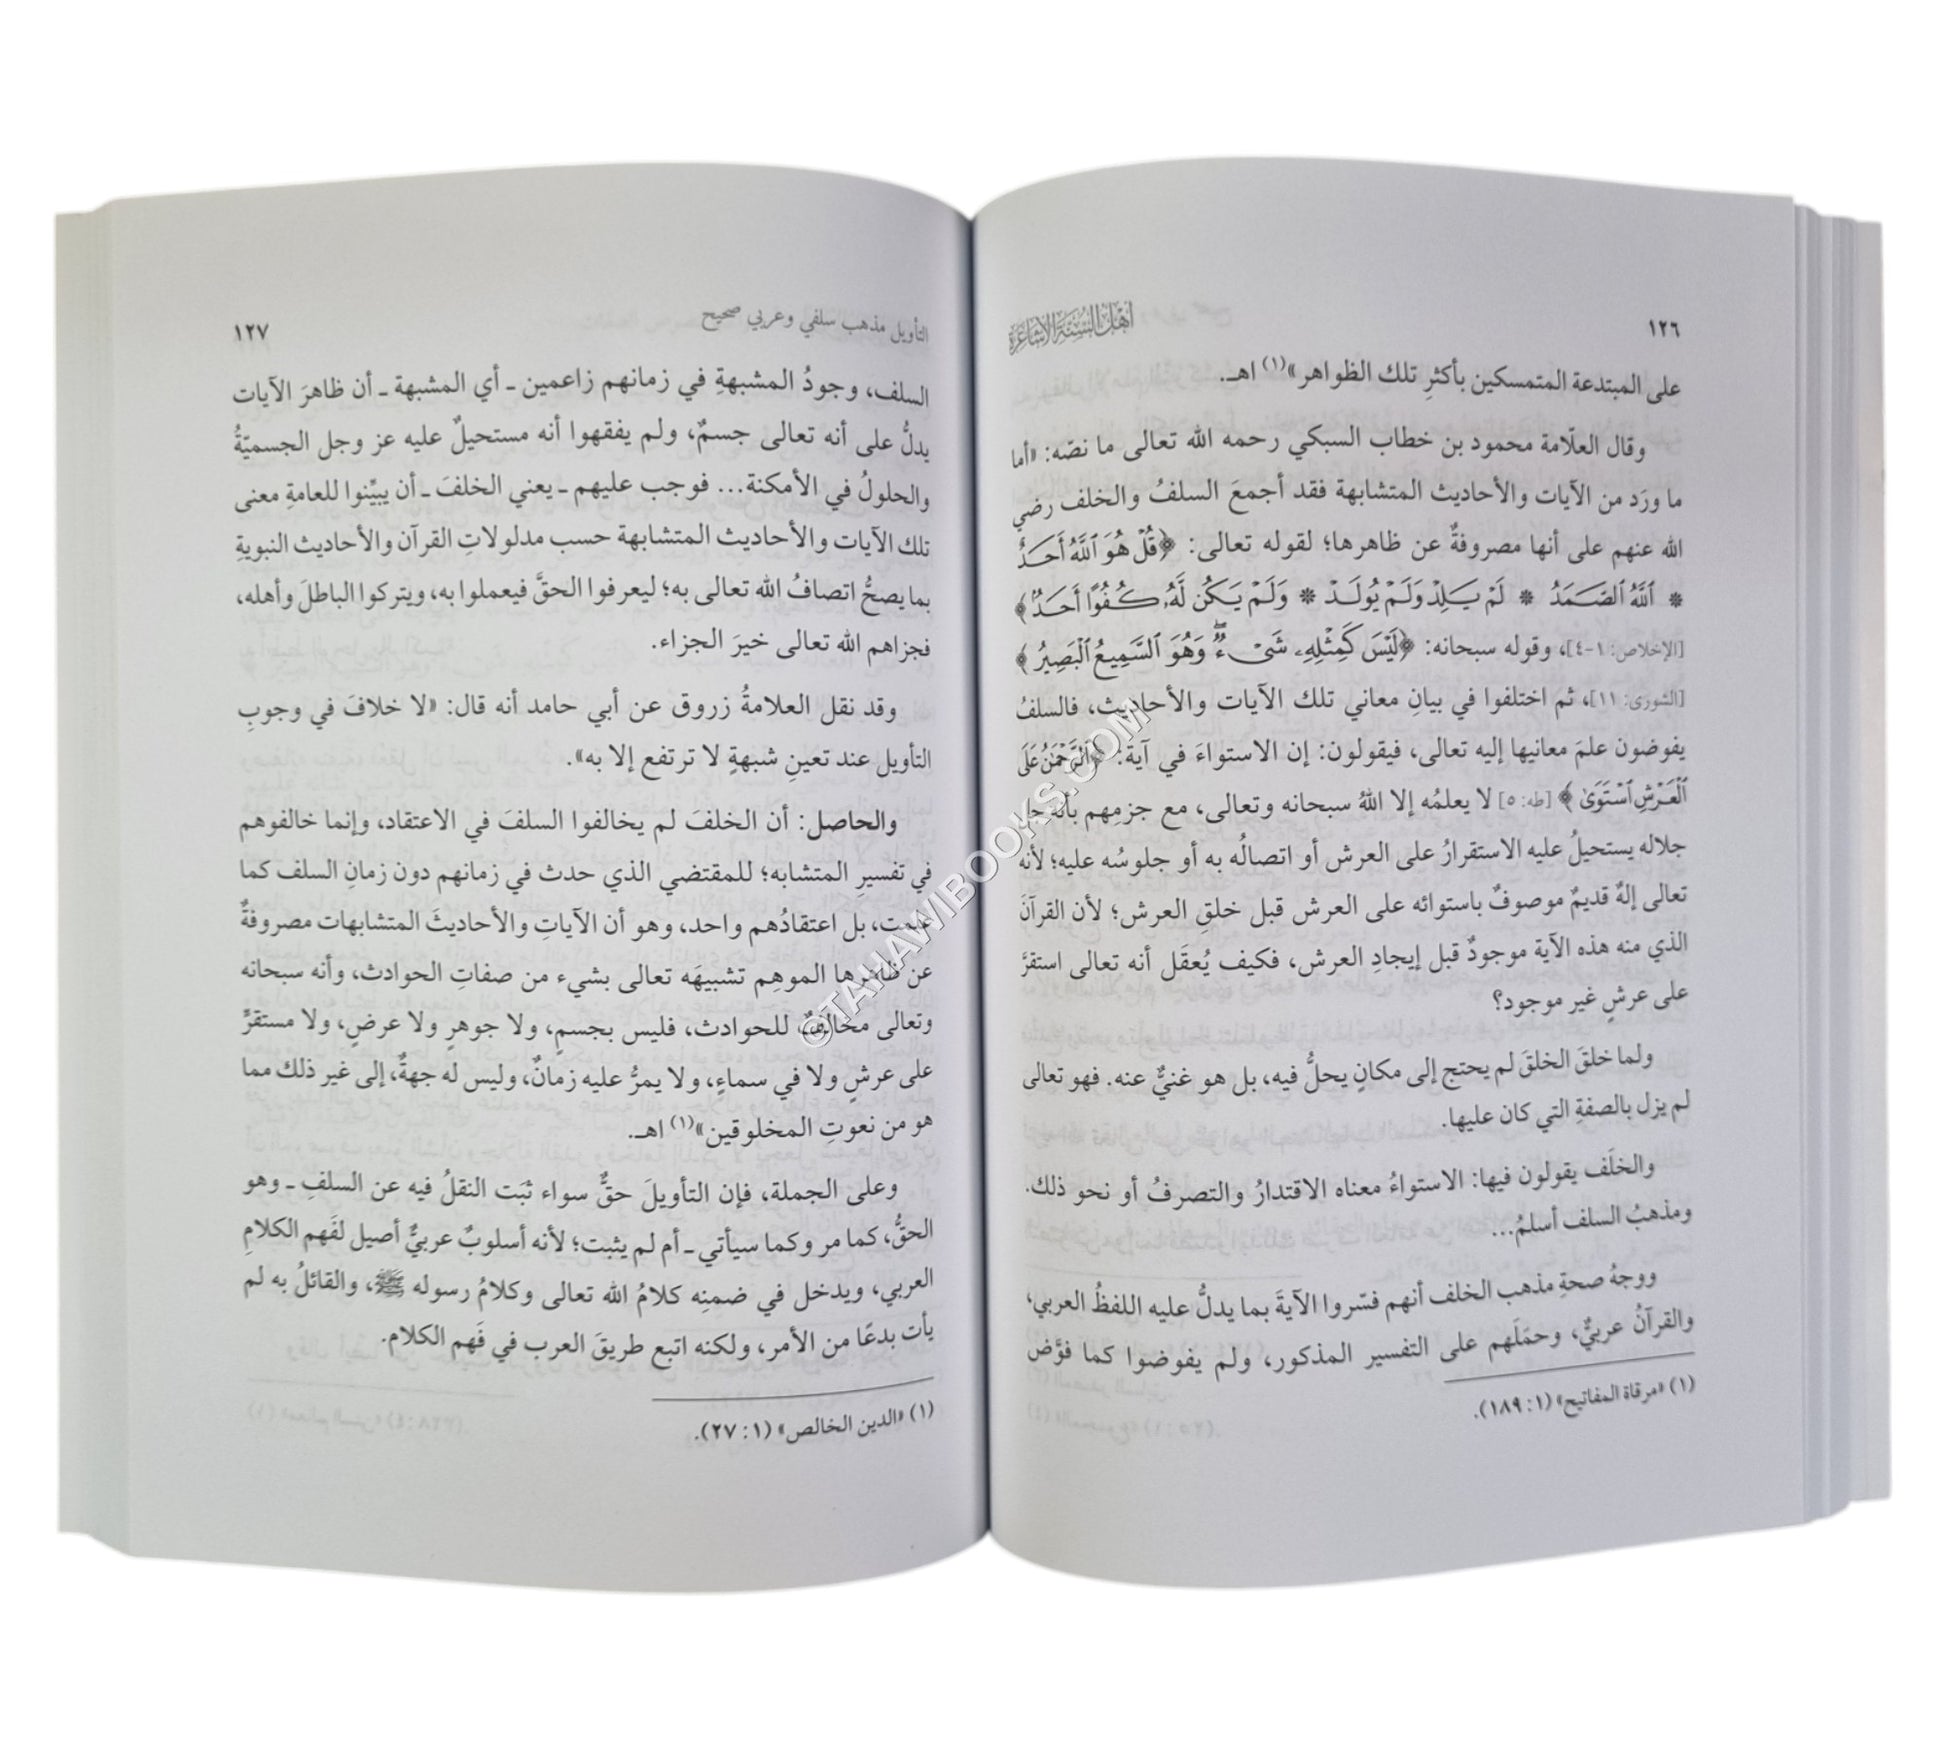 ١٢٦
أهل السنة الأشاعرة
على المبتدعة المتمسكين بأكثرِ تلك الظواهر»(١) اهـ.
وقال العلّامة محمود بن خطاب السبكي رحمه الله تعالى ما نصّه: «أما
ما ورَد من الآيات والأحاديث المتشابهة فقد أجمعَ السلفُ والخلف رضي
الله عنهم على أنها مصروفةٌ عن ظاهرها؛ لقوله تعالى: ﴿قُلْ هُوَ ٱللَّهُ أَحَدٌ
* ٱللَّهُ ٱلصَّمَدُ * لَمْ يَلِدْ وَلَمْ يُولَدْ * وَلَمْ يَكُن لَّهُۥ كُفُوًا أَحَدٌۢ﴾
[الإخلاص: ١-٤]، وقوله سبحانه: ﴿لَيْسَ كَمِثْلِهِۦ شَىْءٌ ۖ وَهُوَ ٱلسَّمِيعُ ٱلْبَصِيرُ﴾
[الشورى: ١١]، ثم اختلفوا في بيانِ معاني تلك الآيات والأحاديث، فالسلفُ
يفوضون علمَ معانيها إليه تعالى، فيقولون: إن الاستواءَ في آية: ﴿ٱلرَّحْمَٰنُ عَلَى
ٱلْعَرْشِ ٱسْتَوَىٰ﴾ [طه: ٥] لا يعلمُه إلا اللهُ سبحانه وتعالى، مع جزمِهم بأنه جل
جلاله يستحيلُ عليه الاستقرارُ على العرش أو اتصالُه به أو جلوسُه عليه؛ لأنه
تعالى إلهٌ قديمٌ موصوفٌ باستوائه على العرش قبل خلقِ العرش؛ لأن القرآنَ
الذي منه هذه الآية موجودٌ قبل إيجادِ العرش، فكيف يُعقَل أنه تعالى استقرَّ
على عرشٍ غير موجود؟
ولما خلقَ الخلقَ لم يحتج إلى مكانٍ يحلُّ فيه، بل هو غنيٌّ عنه. فهو تعالى
لم يزل بالصفةِ التي كان عليها.
والخلَف يقولون فيها: الاستواءُ معناه الاقتدارُ والتصرفُ أو نحو ذلك.
ومذهبُ السلف أسلمُ...
ووجهُ صحةِ مذهب الخلف أنهم فسّروا الآيةَ بما يدلُّ عليه اللفظُ العربي،
والقرآنُ عربيٌّ، وحمَلَهم على التفسير المذكور، ولم يفوضوا كما فوَّض
(١) «مرقاة المفاتيح» (١: ١٨٩).
التأويل مذهب سلفي وعربي صحيح
١٢٧
السلف، وجودُ المشبهةِ في زمانهم زاعمين ـ أي المشبهة ـ أن ظاهرَ الآيات
يدلُّ على أنه تعالى جسمٌ، ولم يفقهوا أنه مستحيلٌ عليه عز وجل الجسميّةُ
والحلولُ في الأمكنة... فوجب عليهم ـ يعني الخلفَ ـ أن يبيِّنوا للعامةِ معنى
تلك الآيات والأحاديث المتشابهة حسب مدلولاتِ القرآن والأحاديث النبويةِ
بما يصحُّ اتصافُ الله تعالى به؛ ليعرفوا الحقَّ فيعملوا به، ويتركوا الباطلَ وأهله،
فجزاهم الله تعالى خيرَ الجزاء.
وقد نقل العلامةُ زروق عن أبي حامد أنه قال: «لا خلافَ في وجوبِ
التأويل عند تعينِ شبهةٍ لا ترتفع إلا به».
والحاصل: أن الخلفَ لم يخالفوا السلفَ في الاعتقاد، وإنما خالفوهم
في تفسيرِ المتشابه؛ للمقتضي الذي حدث في زمانهم دون زمانِ السلف كما
علمت، بل اعتقادُهم واحد، وهو أن الآياتِ والأحاديثَ المتشابهات مصروفةٌ
عن ظاهرها الموهِم تشبيهَه تعالى بشيء من صفاتِ الحوادث، وأنه سبحانه
وتعالى مخالفٌ للحوادث، فليس بجسمٍ، ولا جوهرٍ ولا عرضٍ، ولا مستقرٍّ
على عرشٍ ولا في سماءٍ، ولا يمرُّ عليه زمانٌ، وليس له جهةٌ، إلى غير ذلك مما
هو من نعوتِ المخلوقين»(١) اهـ.
وعلى الجملة، فإن التأويلَ حقٌّ سواء ثبَت النقلُ فيه عن السلفِ ـ وهو
الحقُّ، كما مر وكما سيأتي ـ أم لم يثبت؛ لأنه أسلوبٌ عربيٌّ أصيل لفَهم الكلامِ
العربي، ويدخل في ضمنِه كلامُ الله تعالى وكلامُ رسوله ﷺ، والقائلُ به لم
يأت بدعًا من الأمر، ولكنه اتبع طريقَ العرب في فَهم الكلام.
(١) «الدين الخالص» (١: ٢٧).
©TAHAWIBOOKS.COM